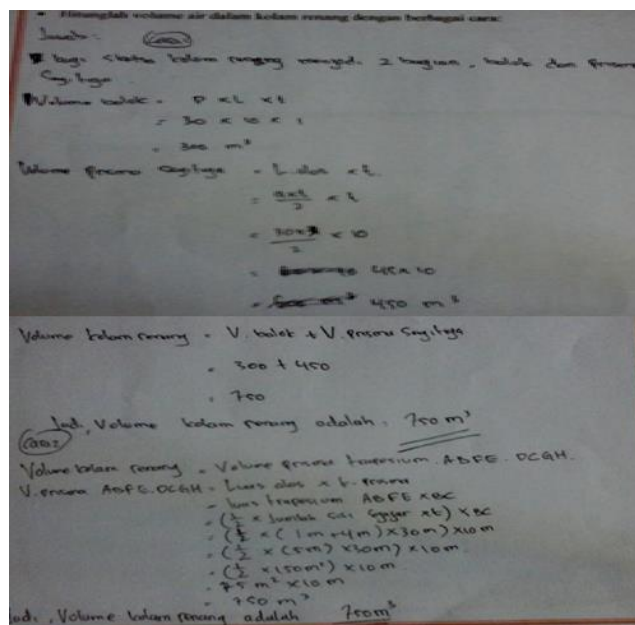 • Hitunglah volume air dalam kolam renang dengan berbagai cara:
Jawab:
bagi sketsa kolam renang menjadi 2 bagian, balok dan prisma
Segitiga
Volume balok = P × L × t
= 30 × 10 × 1
= 300 m³
Volume prisma segitiga = L. alas × t
= a×t/2 × t
= 30×3/2 × 10
= 45 × 10
= 450 m³
Volume kolam renang = V. balok + V. prisma segitiga
= 300 + 450
= 750
Jadi, Volume kolam renang adalah = 750 m³
Cara 2
Volume kolam renang = Volume prisma trapesium ABFE.DCGH.
V. prisma ABFE.DCGH = Luas alas × t. prisma
= luas trapesium ABFE × BC
= (1/2 × Jumlah sisi sejajar × t) × BC
= (1/2 × (1m + 4m) × 30m) × 10 m
= (1/2 × (5m) × 30m) × 10 m
= (1/2 × 150m²) × 10 m
= 75 m² × 10 m
= 750 m³
Jadi, Volume kolam renang adalah 750m³